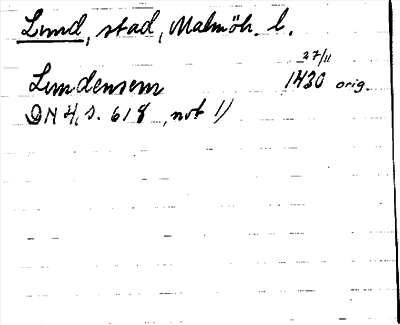 Lund, stad, Malmöh. l.
27/11
Lundensem 1430 orig.
DN 4, s. 618, not 1)